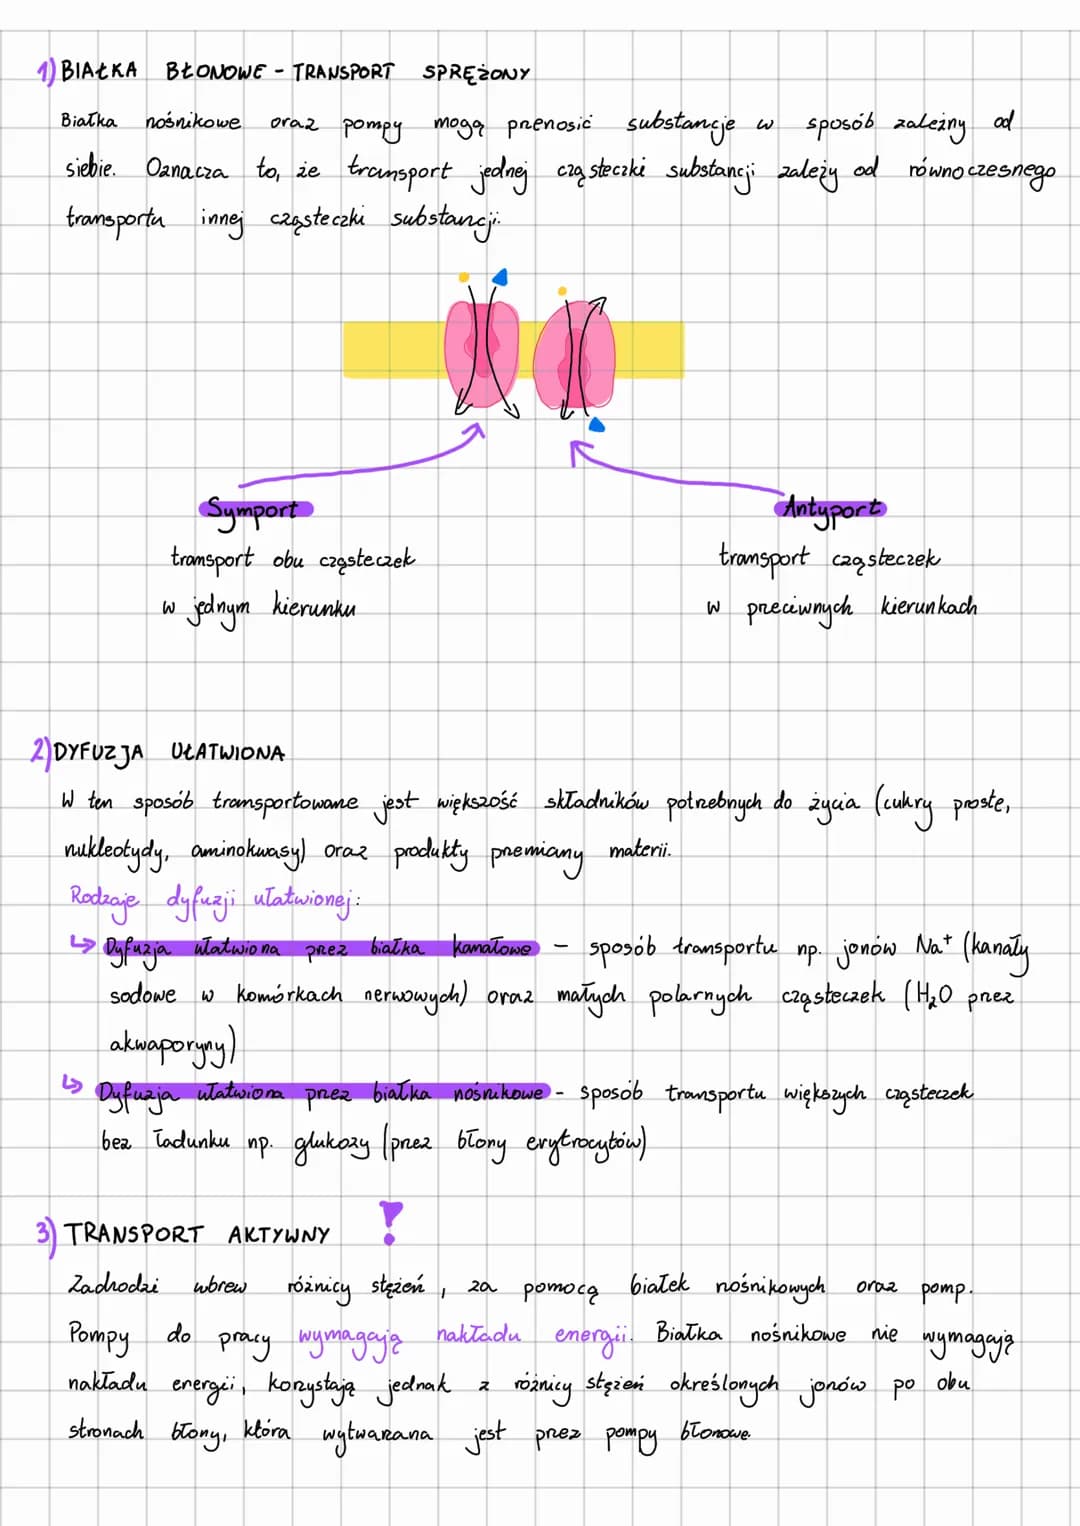 1) BIAŁKA BŁONOWE - TRANSPORT SPRĘŻONY
Białka nośnikowe oraz pompy mogą przenosić substancje w sposób zależny od
siebie. Oznacza to, że transport jednej cząsteczki substancji zależy od równoczesnego
transportu innej cząsteczki substancji.
Symport
transport obu cząsteczek
w jednym kierunku
Antyport
transport cząsteczek
w przeciwnych kierunkach
2) DYFUZJA UŁATWIONA
W ten sposób transportowane jest większość składników potrzebnych do życia (cukry proste,
nukleotydy, aminokwasy) oraz produkty przemiany materii.
Rodzaje dyfuzji ułatwionej:
↳ Dyfuzja ułatwiona przez białka kanałowe - sposób transportu np. jonów Na⁺ (kanały
sodowe w komórkach nerwowych) oraz małych polarnych cząsteczek (H₂O przez
akwaporyny)
↳ Dyfuzja ułatwiona przez białka nośnikowe - sposób transportu większych cząsteczek
bez ładunku np. glukozy (przez błony erytrocytów)
3) TRANSPORT AKTYWNY !
Zachodzi wbrew różnicy stężeń, za pomocą białek nośnikowych oraz pomp.
Pompy do pracy wymagają nakładu energii. Białka nośnikowe nie wymagają
nakładu energii, korzystają jednak z różnicy stężeń określonych jonów po obu
stronach błony, która wytwarzana jest przez pompy błonowe.